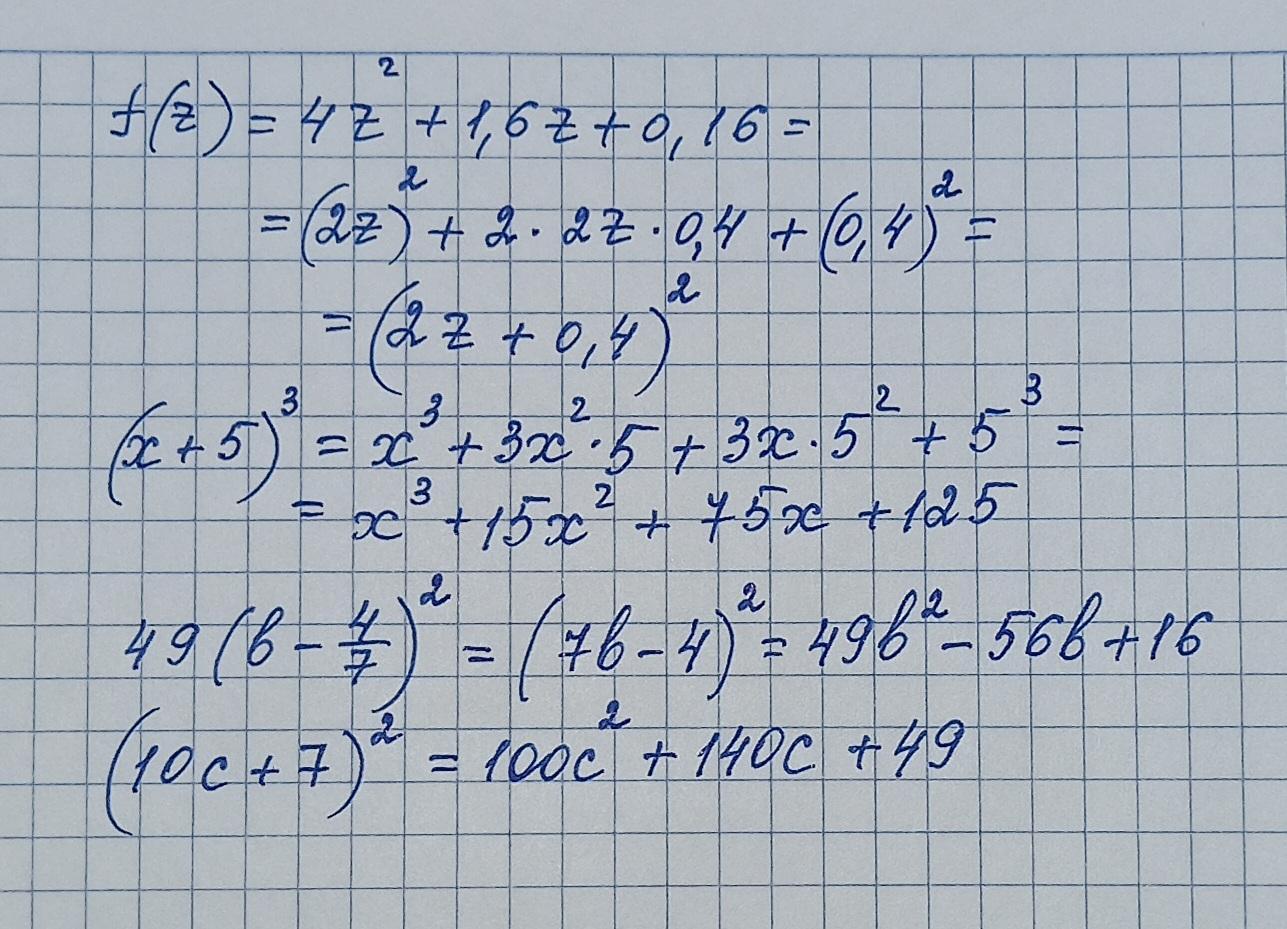 f(z) = 4z² + 1,6z + 0,16 =
= (2z)² + 2 · 2z · 0,4 + (0,4)² =
= (2z + 0,4)²
(x + 5)³ = x³ + 3x² · 5 + 3x · 5² + 5³ =
= x³ + 15x² + 75x + 125
49(b - 4/7)² = (7b - 4)² = 49b² - 56b + 16
(10c + 7)² = 100c² + 140c + 49